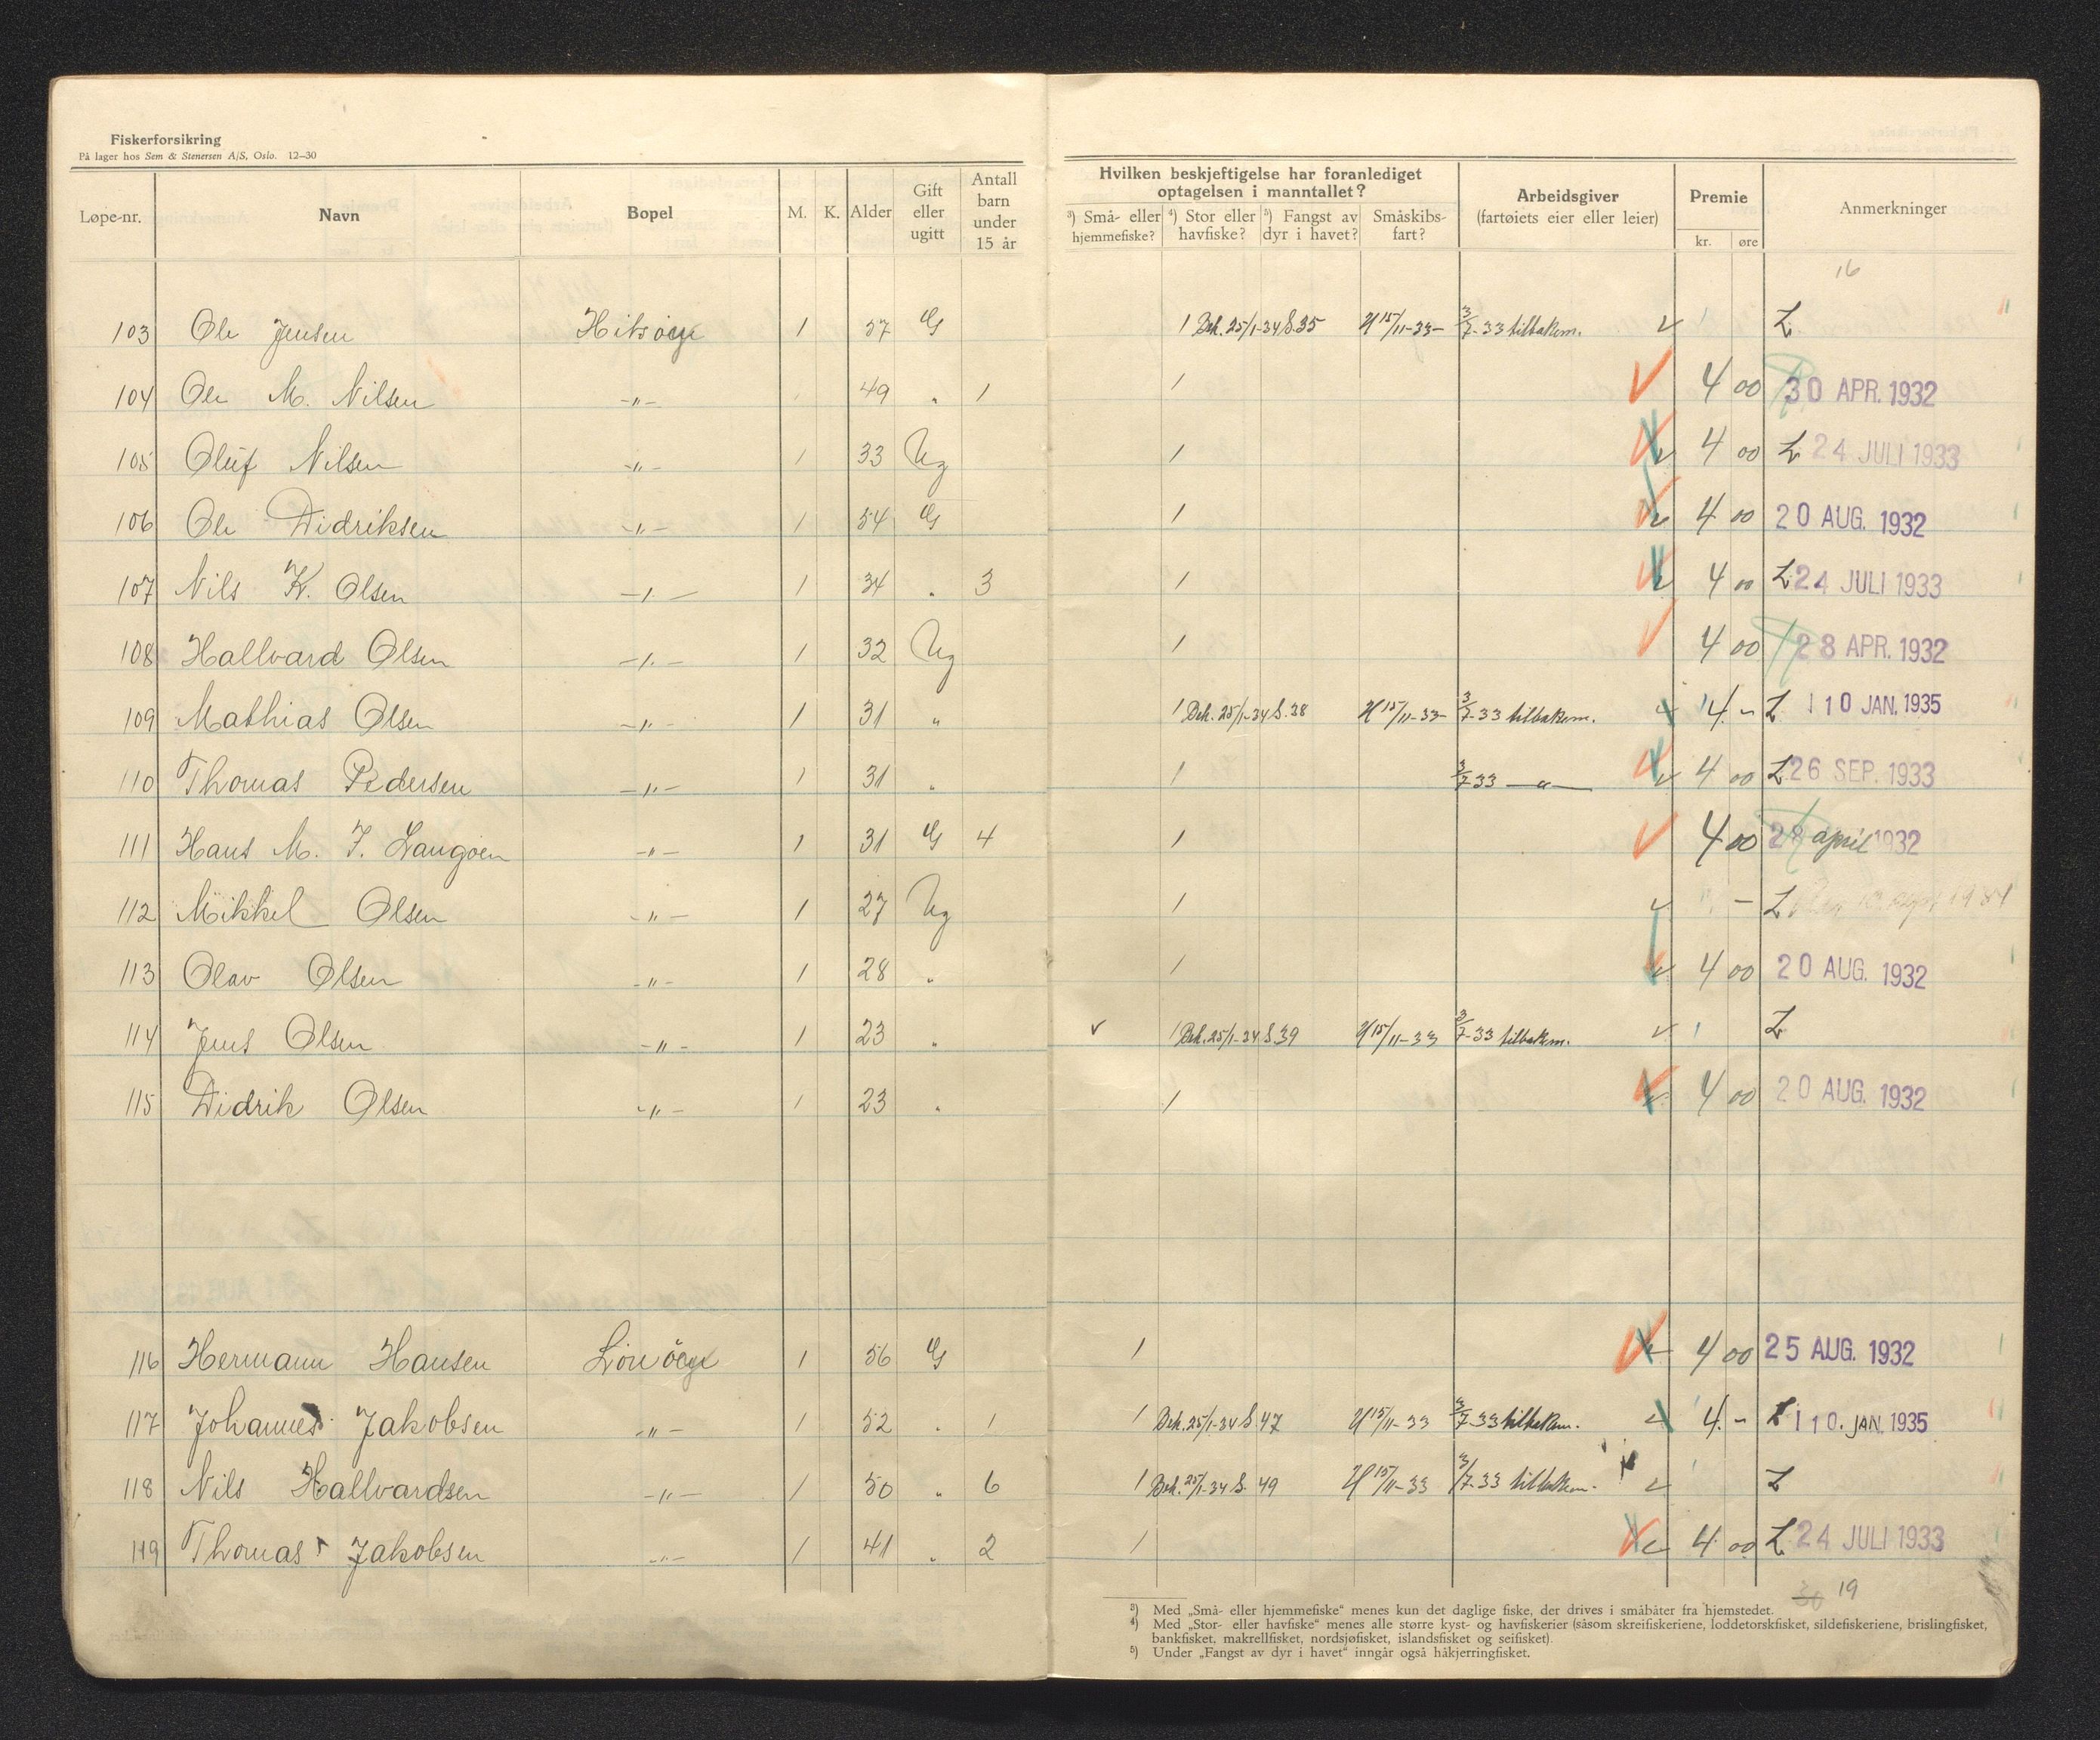 Fiskerforsikring
På lager hos Sem & Stenersen A/S, Oslo. 12–30
Løpe-nr. Navn Bopel M. K. Alder Gift eller ugitt Antall barn under 15 år
Hvilken beskjeftigelse har foranlediget optagelsen i manntallet?
³) Små- eller hjemmefiske? ⁴) Stor eller havfiske? ⁵) Fangst av dyr i havet? Småskibs-fart? Arbeidsgiver (fartøiets eier eller leier) Premie kr. øre Anmerkninger
16
103 Ole Jensen 1 57 G 1 Bek. 25/1-34 S. 35 15/11-33- 3/7-33 tilbakem. L
104 Ole M. Nilsen -"- 49 " 1 1 4 00 30 APR. 1932
105 Oluf Nilsen -"- 1 33 Ug 1 4 00 L 24 JULI 1933
106 Ole Didriksen -"- 1 54 G 1 4 00 20 AUG. 1932
107 Nils K. Olsen -"- 1 34 " 3 1 4 00 L 24 JULI 1933
108 Hallvard Olsen -"- 1 32 Ug 1 4 00 28 APR. 1932
109 Mathias Olsen -"- 1 31 " 1 Bek. 25/1-34 S. 38 15/11-33- 3/7-33 tilbakem. 4 - L 10 JAN. 1935
110 Thomas Pedersen -"- 1 31 " 1 3/7 33 —"— 4 00 L 26 SEP. 1933
111 Hans M. J. Langøen -"- 1 31 G 4 1 4 00 28 april 1932
112 Mikkel Olsen -"- 1 27 Ug 1 - L
113 Olav Olsen -"- 1 28 " 1 4 00 20 AUG. 1932
114 Jens Olsen -"- 1 23 " 1 Bek. 25/1-34 S. 39 15/11-33 3/7-33 tilbakem. L
115 Didrik Olsen -"- 1 23 " 1 4 00 20 AUG. 1932
116 Hermann Hansen 1 56 G 1 4 00 25 AUG. 1932
117 Johannes Jakobsen -"- 1 52 " 1 1 Bek. 25/1-34 S. 47 15/11-33 3/7-33 tilbakem. 4 - L 10. JAN. 1935
118 Nils Hallvardsen -"- 1 50 " 6 1 Bek. 25/1-34 S. 49 15/11-33 3/7-33 tilbakem. L
119 Thomas Jakobsen -"- 1 41 " 2 1 4 00 L 24 JULI 1933
30 19
³) Med „Små- eller hjemmefiske“ menes kun det daglige fiske, der drives i småbåter fra hjemstedet.
⁴) Med „Stor- eller havfiske“ menes alle større kyst- og havfiskerier (såsom skreifiskeriene, loddetorskfisket, sildefiskeriene, brislingfisket,
bankfisket, makrellfisket, nordsjøfisket, islandsfisket og seifisket).
⁵) Under „Fangst av dyr i havet“ inngår også håkjerringfisket.